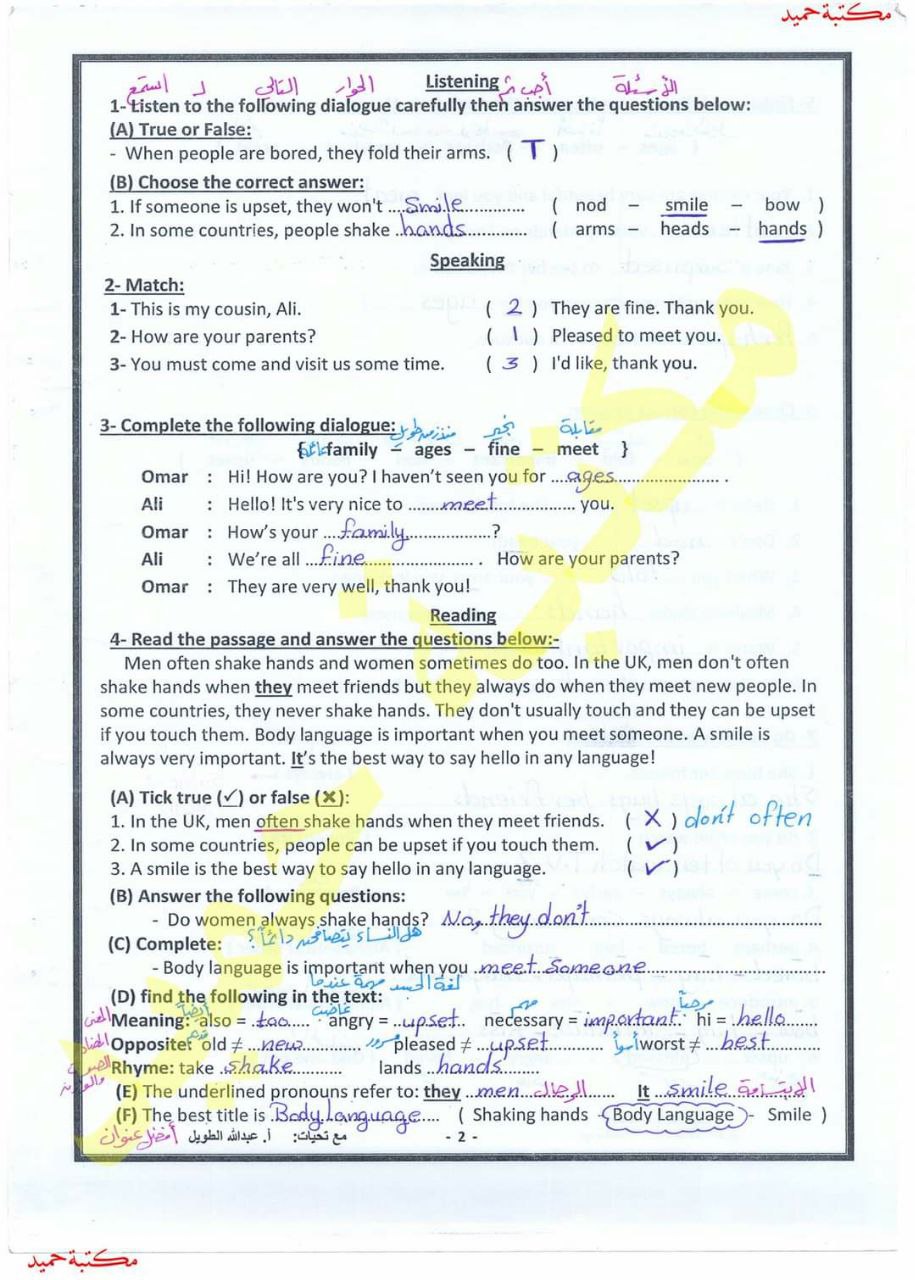 مكتبة حميد
Listening
استمع لـ التالي الحوار أجب ثم الأسئلة
1- Listen to the following dialogue carefully then answer the questions below:
(A) True or False:
- When people are bored, they fold their arms. ( T )
(B) Choose the correct answer:
1. If someone is upset, they won't ...smile............... ( nod – smile – bow )
2. In some countries, people shake ..hands............... ( arms – heads – hands )
Speaking
2- Match:
1- This is my cousin, Ali. ( 2 ) They are fine. Thank you.
2- How are your parents? ( 1 ) Pleased to meet you.
3- You must come and visit us some time. ( 3 ) I'd like, thank you.
3- Complete the following dialogue: منذ زمن طويل بخير مقابلة
{ عائلة family – ages – fine – meet }
Omar : Hi! How are you? I haven't seen you for ...ages..................... .
Ali : Hello! It's very nice to .......meet................ you.
Omar : How's your ...family.................?
Ali : We're all ...fine..................... . How are your parents?
Omar : They are very well, thank you!
Reading
4- Read the passage and answer the questions below:-
Men often shake hands and women sometimes do too. In the UK, men don't often
shake hands when they meet friends but they always do when they meet new people. In
some countries, they never shake hands. They don't usually touch and they can be upset
if you touch them. Body language is important when you meet someone. A smile is
always very important. It's the best way to say hello in any language!
(A) Tick true (✓) or false (✗):
1. In the UK, men often shake hands when they meet friends. ( X ) don't often
2. In some countries, people can be upset if you touch them. ( ✓ )
3. A smile is the best way to say hello in any language. ( ✓ )
(B) Answer the following questions:
- Do women always shake hands? No, they don't.....................
هل النساء يتصافحن دائماً؟
(C) Complete:
- Body language is important when you .meet someone.....................
لغة الجسد مهمة عندما
(D) find the following in the text:
المعنى Meaning: also أيضاً = .too.... angry غاضب = ..upset.. necessary مهم = important. hi مرحباً = ..hello...
المضاد Opposite: old قديم ≠ ...new.......... pleased مسرور ≠ ...upset............ worst أسوأ ≠ ..best.......
Rhyme: take ..shake.......... lands ..hands......
(E) The underlined pronouns refer to: they ..men.. الرجال It ...smile الإبتسامة
(F) The best title is Body language.... ( Shaking hands - Body Language - Smile )
أفضل عنوان
مع تحيات: أ. عبدالله الطويل - 2 -
مكتبة حميد